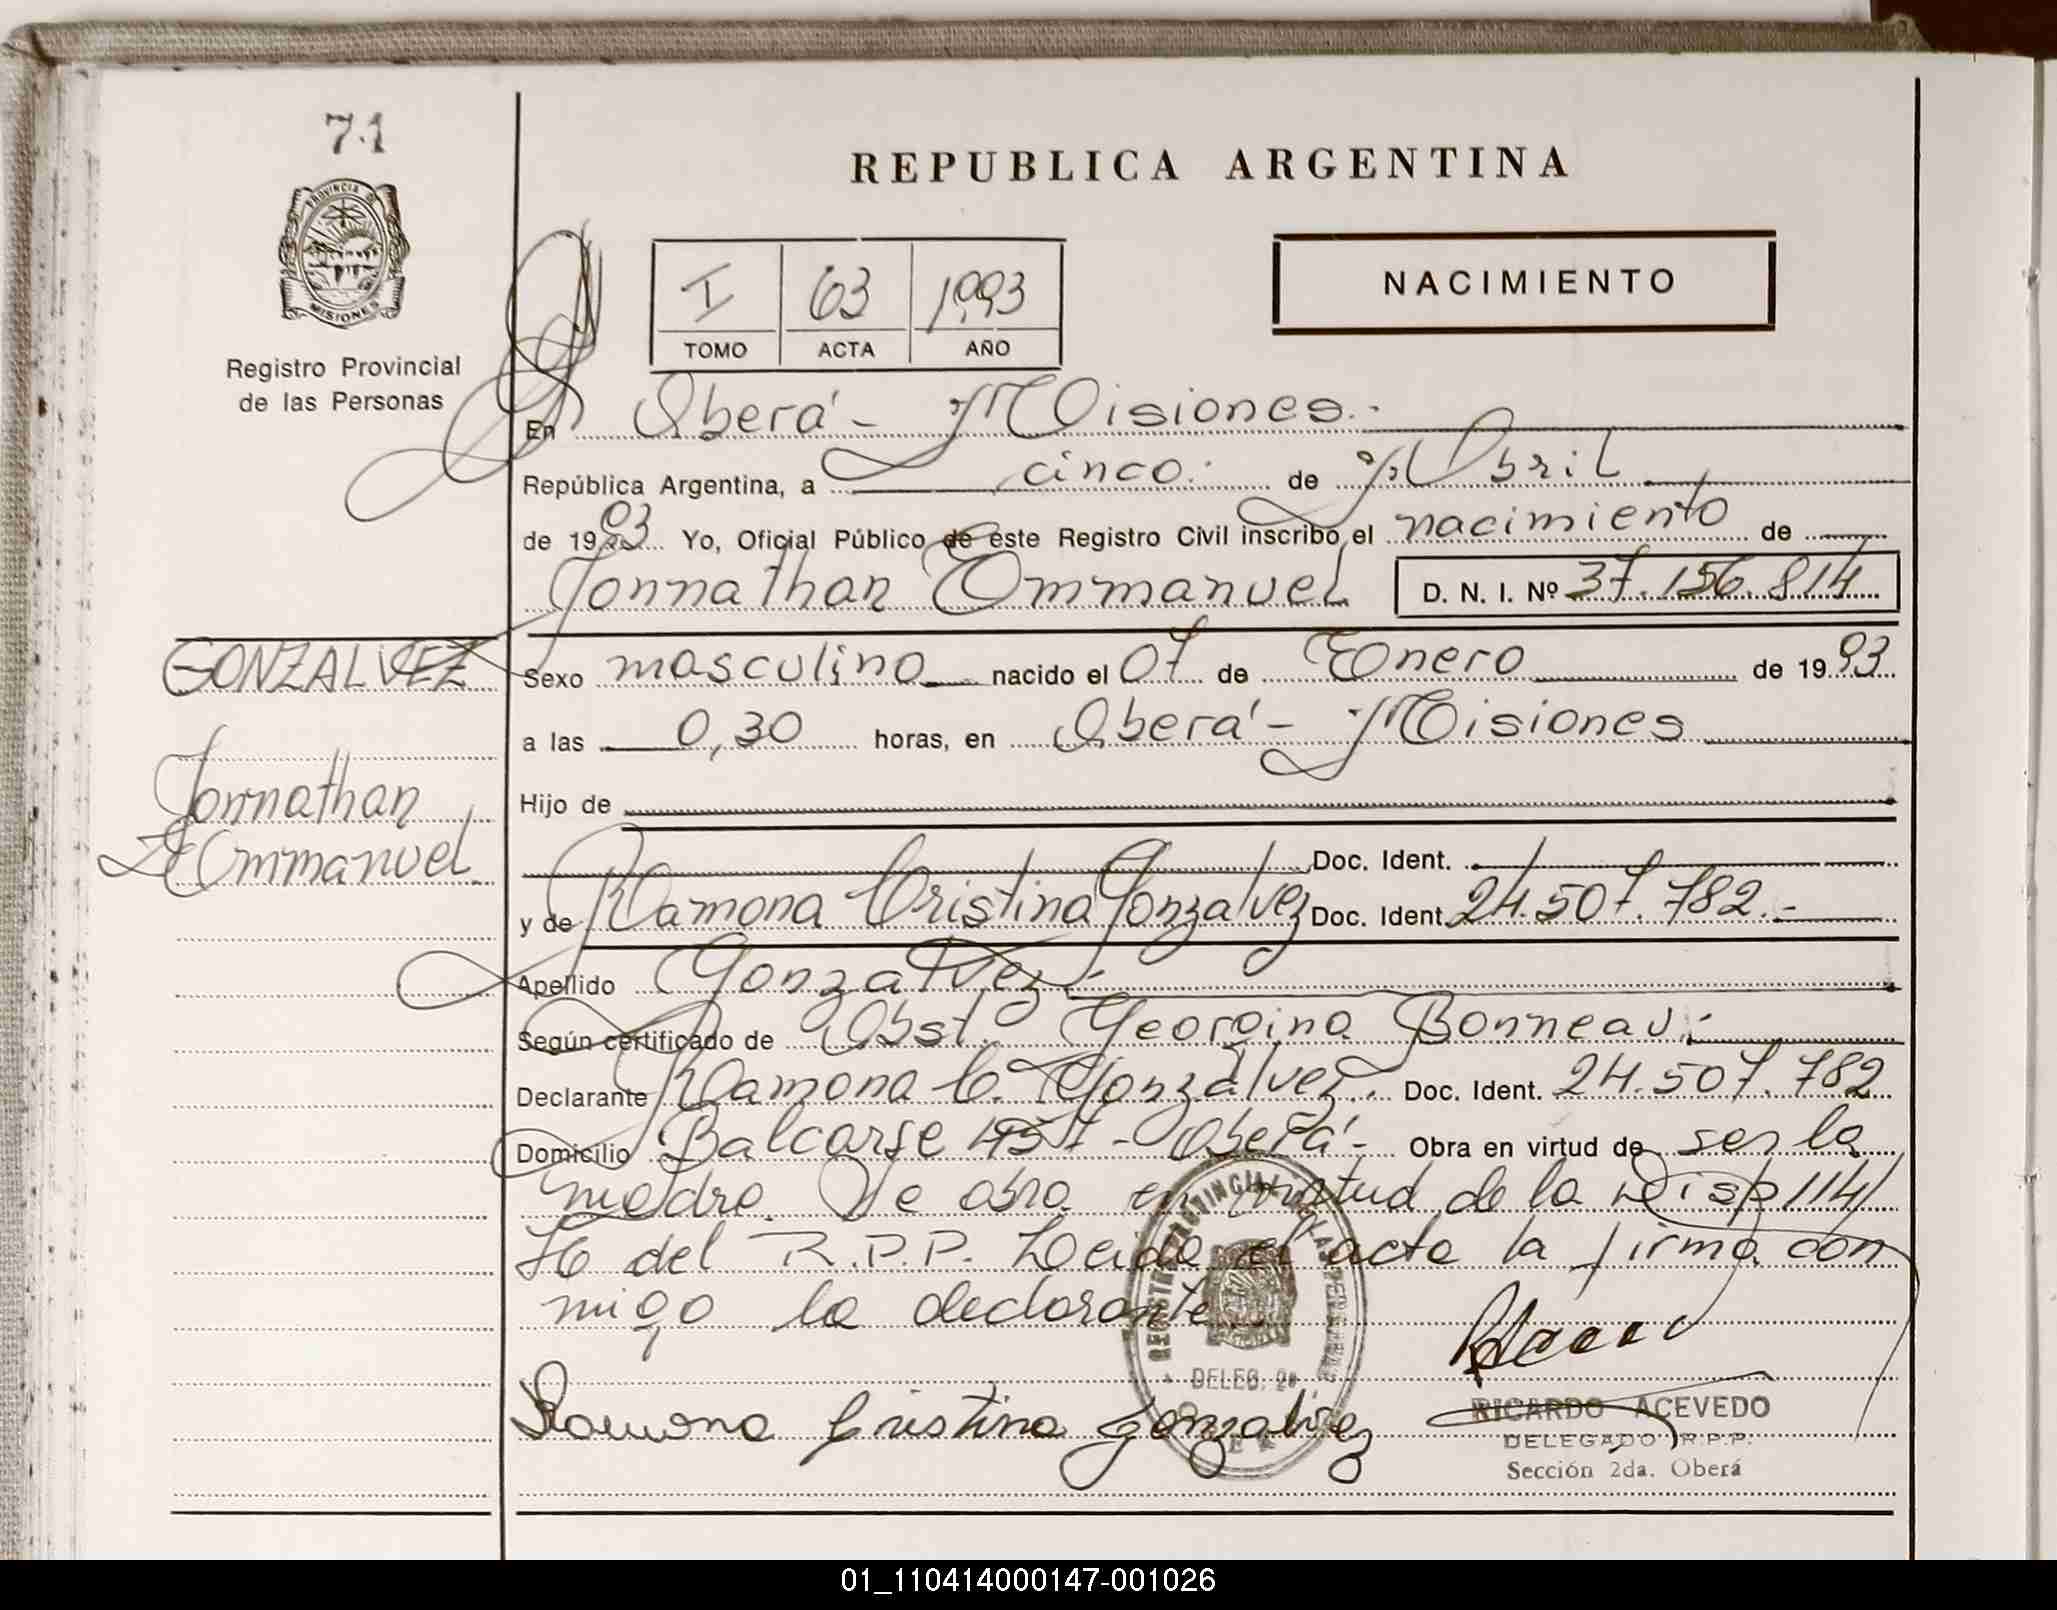 71
PROVINCIA D
MISIONES
Registro Provincial
de las Personas
REPUBLICA ARGENTINA
I 63 1993
TOMO ACTA AÑO
NACIMIENTO
En Oberá - Misiones.-
República Argentina, a cinco.- de Abril
de 1993 Yo, Oficial Público de este Registro Civil inscribo el nacimiento de
Jonnathan Emmanuel D. N. I. Nº 37.156.814
GONZALVEZ
Jonnathan
Emmanuel
Sexo masculino nacido el 07 de Enero de 1993
a las 0,30 horas, en Oberá - Misiones
Hijo de
Doc. Ident.
y de Ramona Cristina Gonzalvez Doc. Ident. 24.507.782.-
Apellido Gonzalvez.-
Según certificado de Obst. Georgina Bonneau.-
Declarante Ramona C. Gonzalvez.. Doc. Ident. 24.507.782
Domicilio Balcarse 457 - Oberá - Obra en virtud de ser la
madre. Se obra en virtud de la Disp 114/
76 del R.P.P. Leida el acta la firma con
migo la declarante
REGISTRO PROVINCIAL DE LAS PERSONAS
DELEG. 2a
Ramona Cristina Gonzalvez
RICARDO ACEVEDO
DELEGADO R.P.P.
Sección 2da. Oberá
01_110414000147-001026